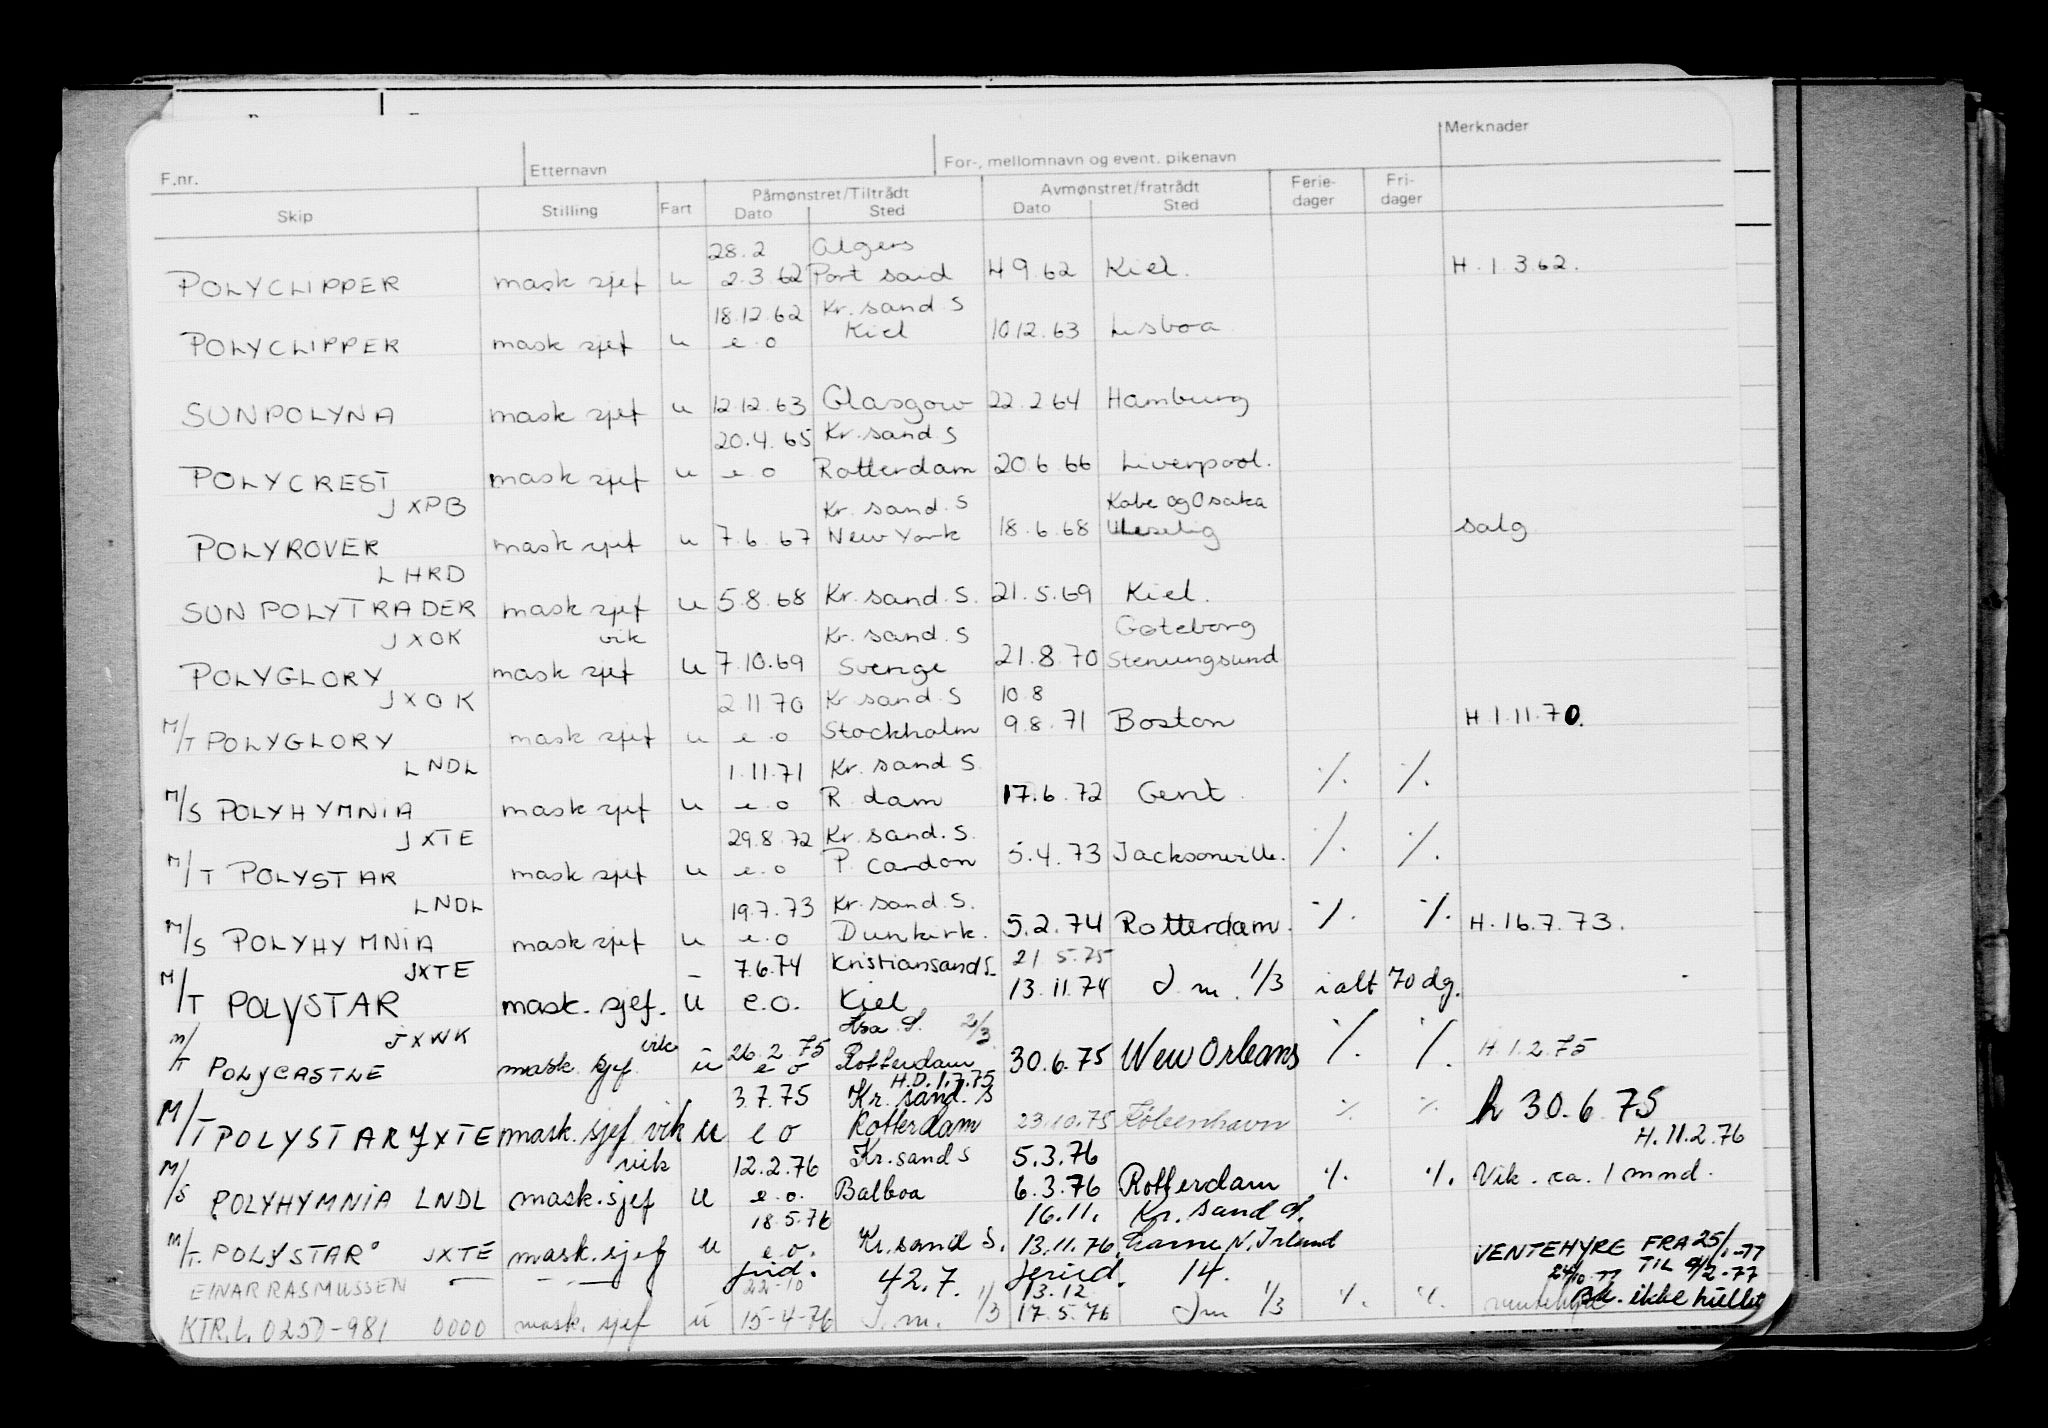 Merknader
F.nr. Etternavn For-, mellomnavn og event. pikenavn
Påmønstret/Tiltrådt Avmønstret/fratrådt Ferie- Fri-
Skip Stilling Fart Dato Sted Dato Sted dager dager
28.2 Algers
POLYCLIPPER mask sjef u 2.3.62 Port said 4 9.62 Kiel. H. 1.3.62.
18.12.62 Kr. sand S
POLYCLIPPER mask sjef u e.o Kiel 10 12.63 Lisboa
SUNPOLYNA mask sjef u 12 12.63 Glasgow 22.2 64 Hamburg
20.4.65 Kr. sand S
POLYCREST mask sjef u e o Rotterdam 20.6 66 Liverpool.
JXPB Kr. sand. S Kobe og Osaka
POLYROVER mask sjef u 7.6.67 New York 18.6.68 Uleselig salg
LHRD
SUN POLYTRADER mask sjef u 5.8.68 Kr. sand. S. 21.5.69 Kiel.
JXOK vik Kr. sand. S Goteborg
POLYGLORY mask sjef u 7.10.69 Sverige 21.8.70 Stenungsund
JXOK 2 11 70 Kr sand. S 10.8
M/T POLYGLORY mask sjef u e o Stockholm 9.8.71 Boston H 1.11.70.
LNDL 1.11.71 Kr. sand S.
M/S POLYHYMNIA mask sjef u e.o R.dam 17.6.72 Gent. ·/. ·/.
JXTE 29.8.72 Kr. sand. S.
M/T POLYSTAR mask sjef u e.o P. Cardon 5.4.73 Jacksonville. ·/. ·/.
LNDL 19.7.73 Kr. sand. S.
M/S POLYHYMNIA mask sjef u e.o Dunkirk. 5.2.74 Rotterdam. ·/. ·/. H. 16.7.73.
JXTE – 7.6.74 Kristiansand S- 21 5.75
M/T POLYSTAR mask. sjef. u e.o. Kiel 13.11.74 J m. 1/3 i alt 70 dg.
JXWK vik 26.2.75 2/3
M/T POLYCASTLE mask. sjef u e o Rotterdam 30.6.75 New Orleans ·/. ·/. H.1.2.75
3.7.75 H.D.1.7.75 Kr. sand. S
M/T POLYSTAR JXTE mask. sjef vik u e o Rotterdam 23.10.75 København ·/. ·/. h 30.6.75
vik 12.2.76 Kr. sand S 5.3.76 H.11.2.76
M/S POLYHYMNIA LNDL mask. sjef u e.o. Balboa 6.3.76 Rotterdam ·/. ·/. Vik. ca. 1 mnd.
18.5.76 16.11. Kr. sand S.
M/T. POLYSTAR JXTE mask. sjef u e.o. Kr. sand S. 13.11.76. Larne N. Irland VENTEHYRE FRA 25/1-77
frid. 42.7. feried. 14. TIL 9/2-77
EINAR RASMUSSEN — – — 22-10 13.12
KTR.L. 0250-981 0000 mask. sjef u 15-4-76 J. m. 1/3 17.5.76 J m 1/3 ·/. ·/. ventehyre Bk. ikke hullet